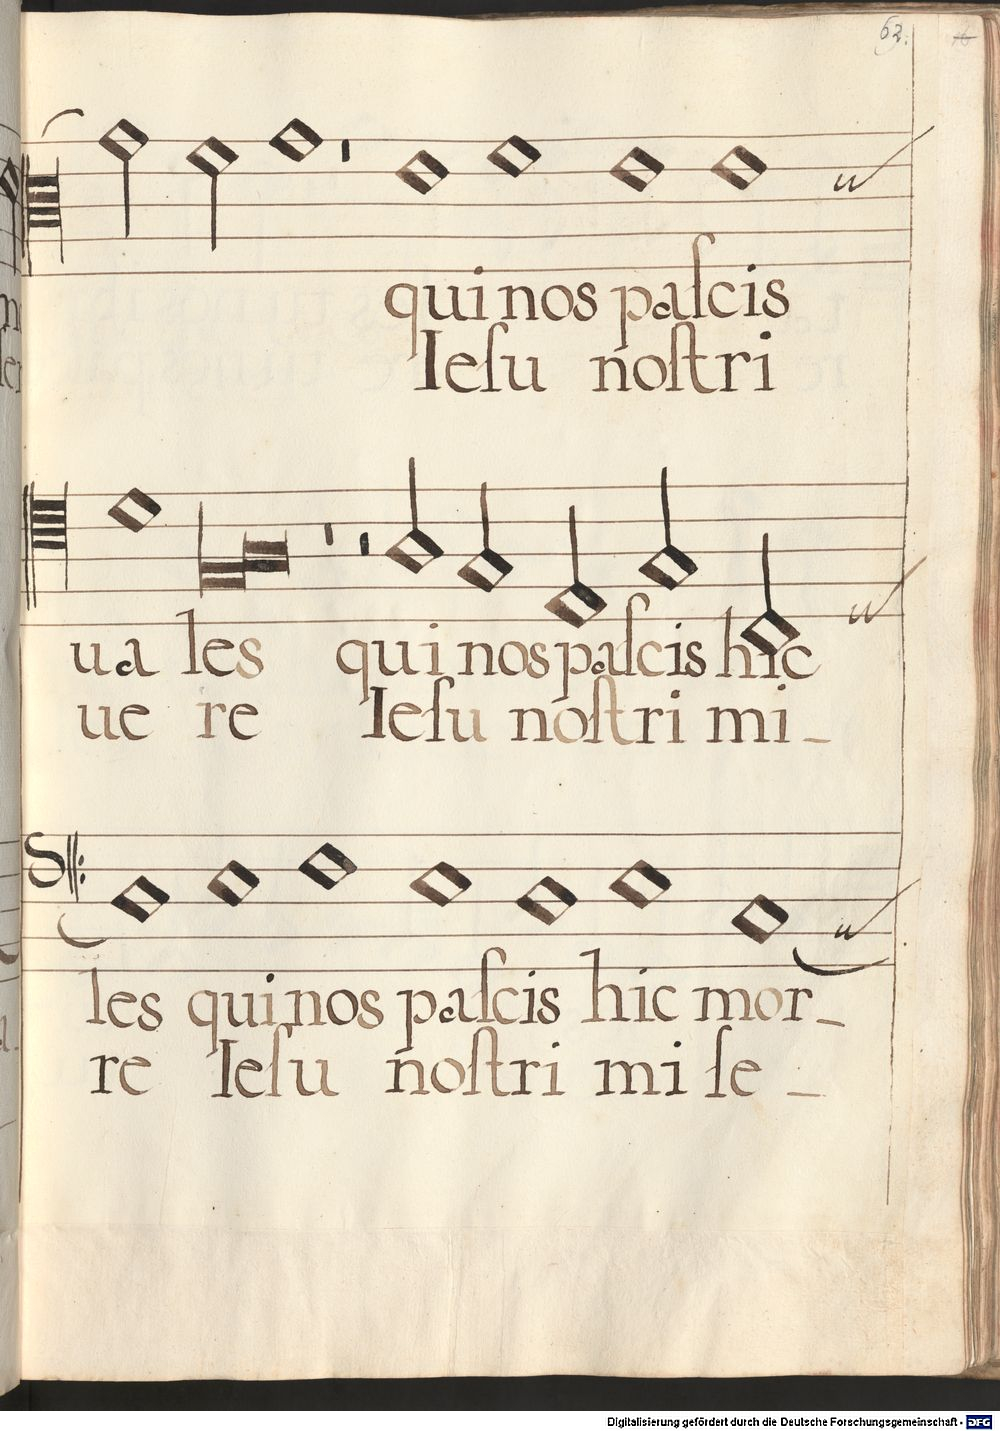 62.
qui nos paſcis
Ieſu noſtri
ua les qui nos paſcis hic
ue re Ieſu noſtri mi_
les qui nos paſcis hic mor_
re Ieſu noſtri mi ſe _
Digitalisierung gefördert durch die Deutsche Forschungsgemeinschaft - DFG